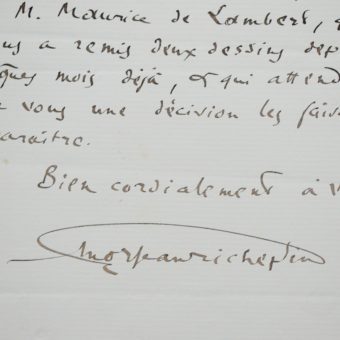 M. Maurice de Lambert, q
us a remis deux dessins dep
ques mois déjà, & qui attend
vous une décision les fais
araître.
Bien cordialement à v
Jean Richepin